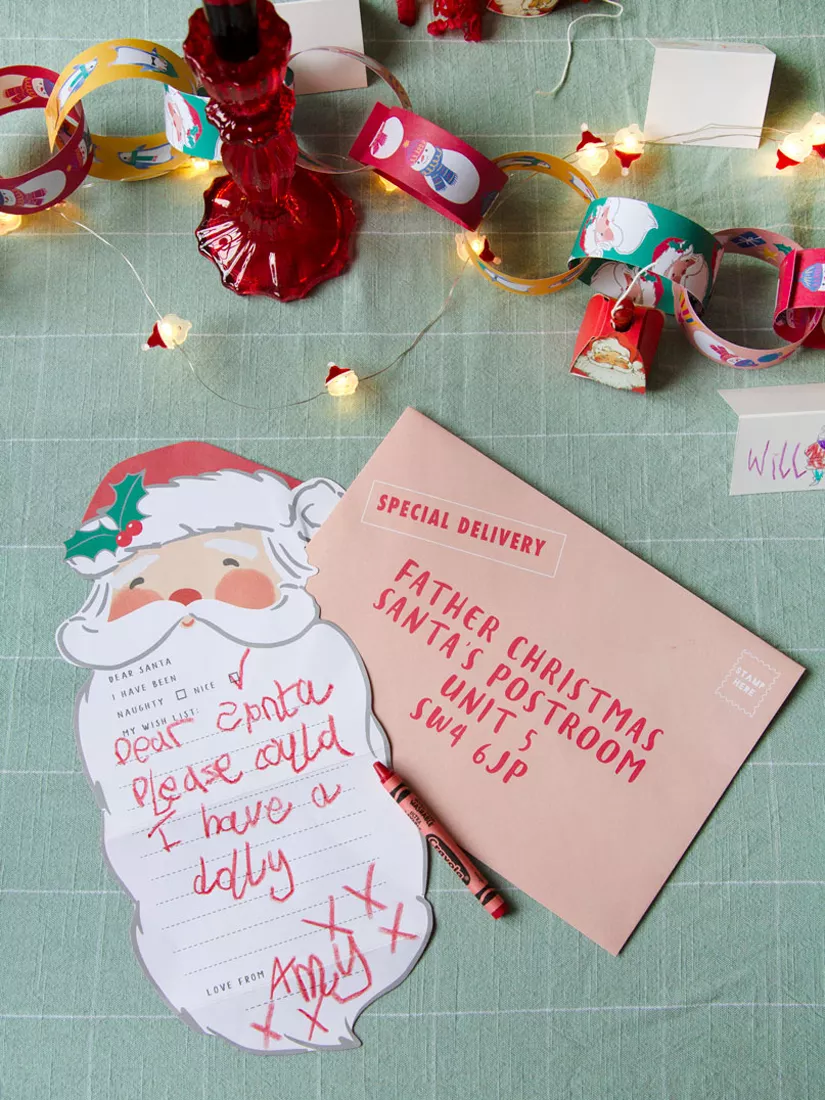 Will
SPECIAL DELIVERY
FATHER CHRISTMAS
SANTA'S POSTROOM
UNIT 5
SW4 6JP
STAMP
HERE
DEAR SANTA
I HAVE BEEN
NAUGHTY NICE
MY WISH LIST:
Dear Santa
Please could
I have a
dolly
X X
X
LOVE FROM Amy
X X
Crayola